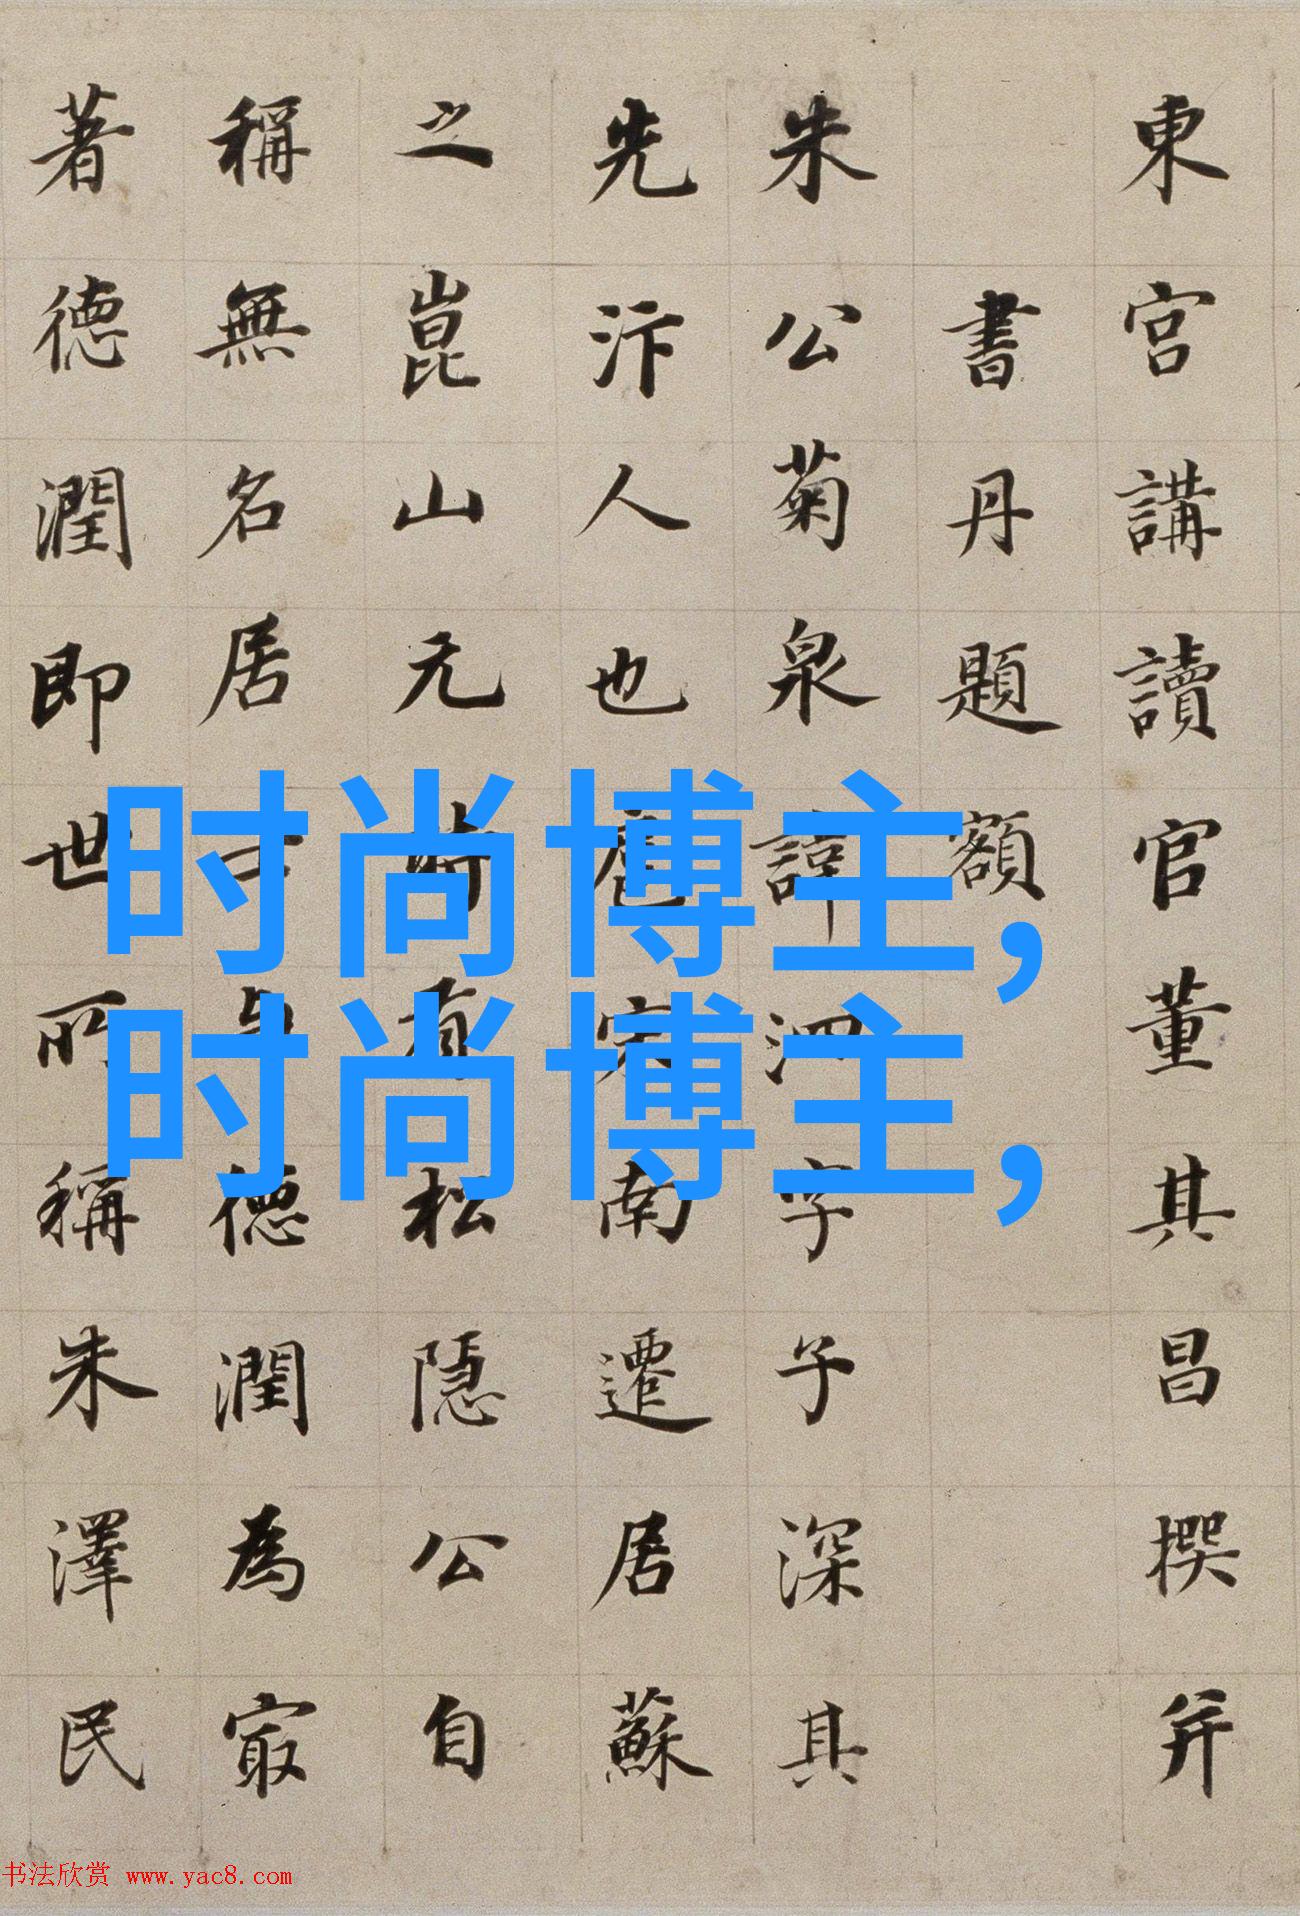 東宮講讀官董其昌撰并
書丹題額
朱公菊泉諱泗字子深其
先汴人也扈宋南遷居蘇
之崑山元時有松隱公自
稱無名居士德潤為㝡
著德潤即世所稱朱澤民
时尚博主,
时尚博主,
书法欣赏 www.yac8.com